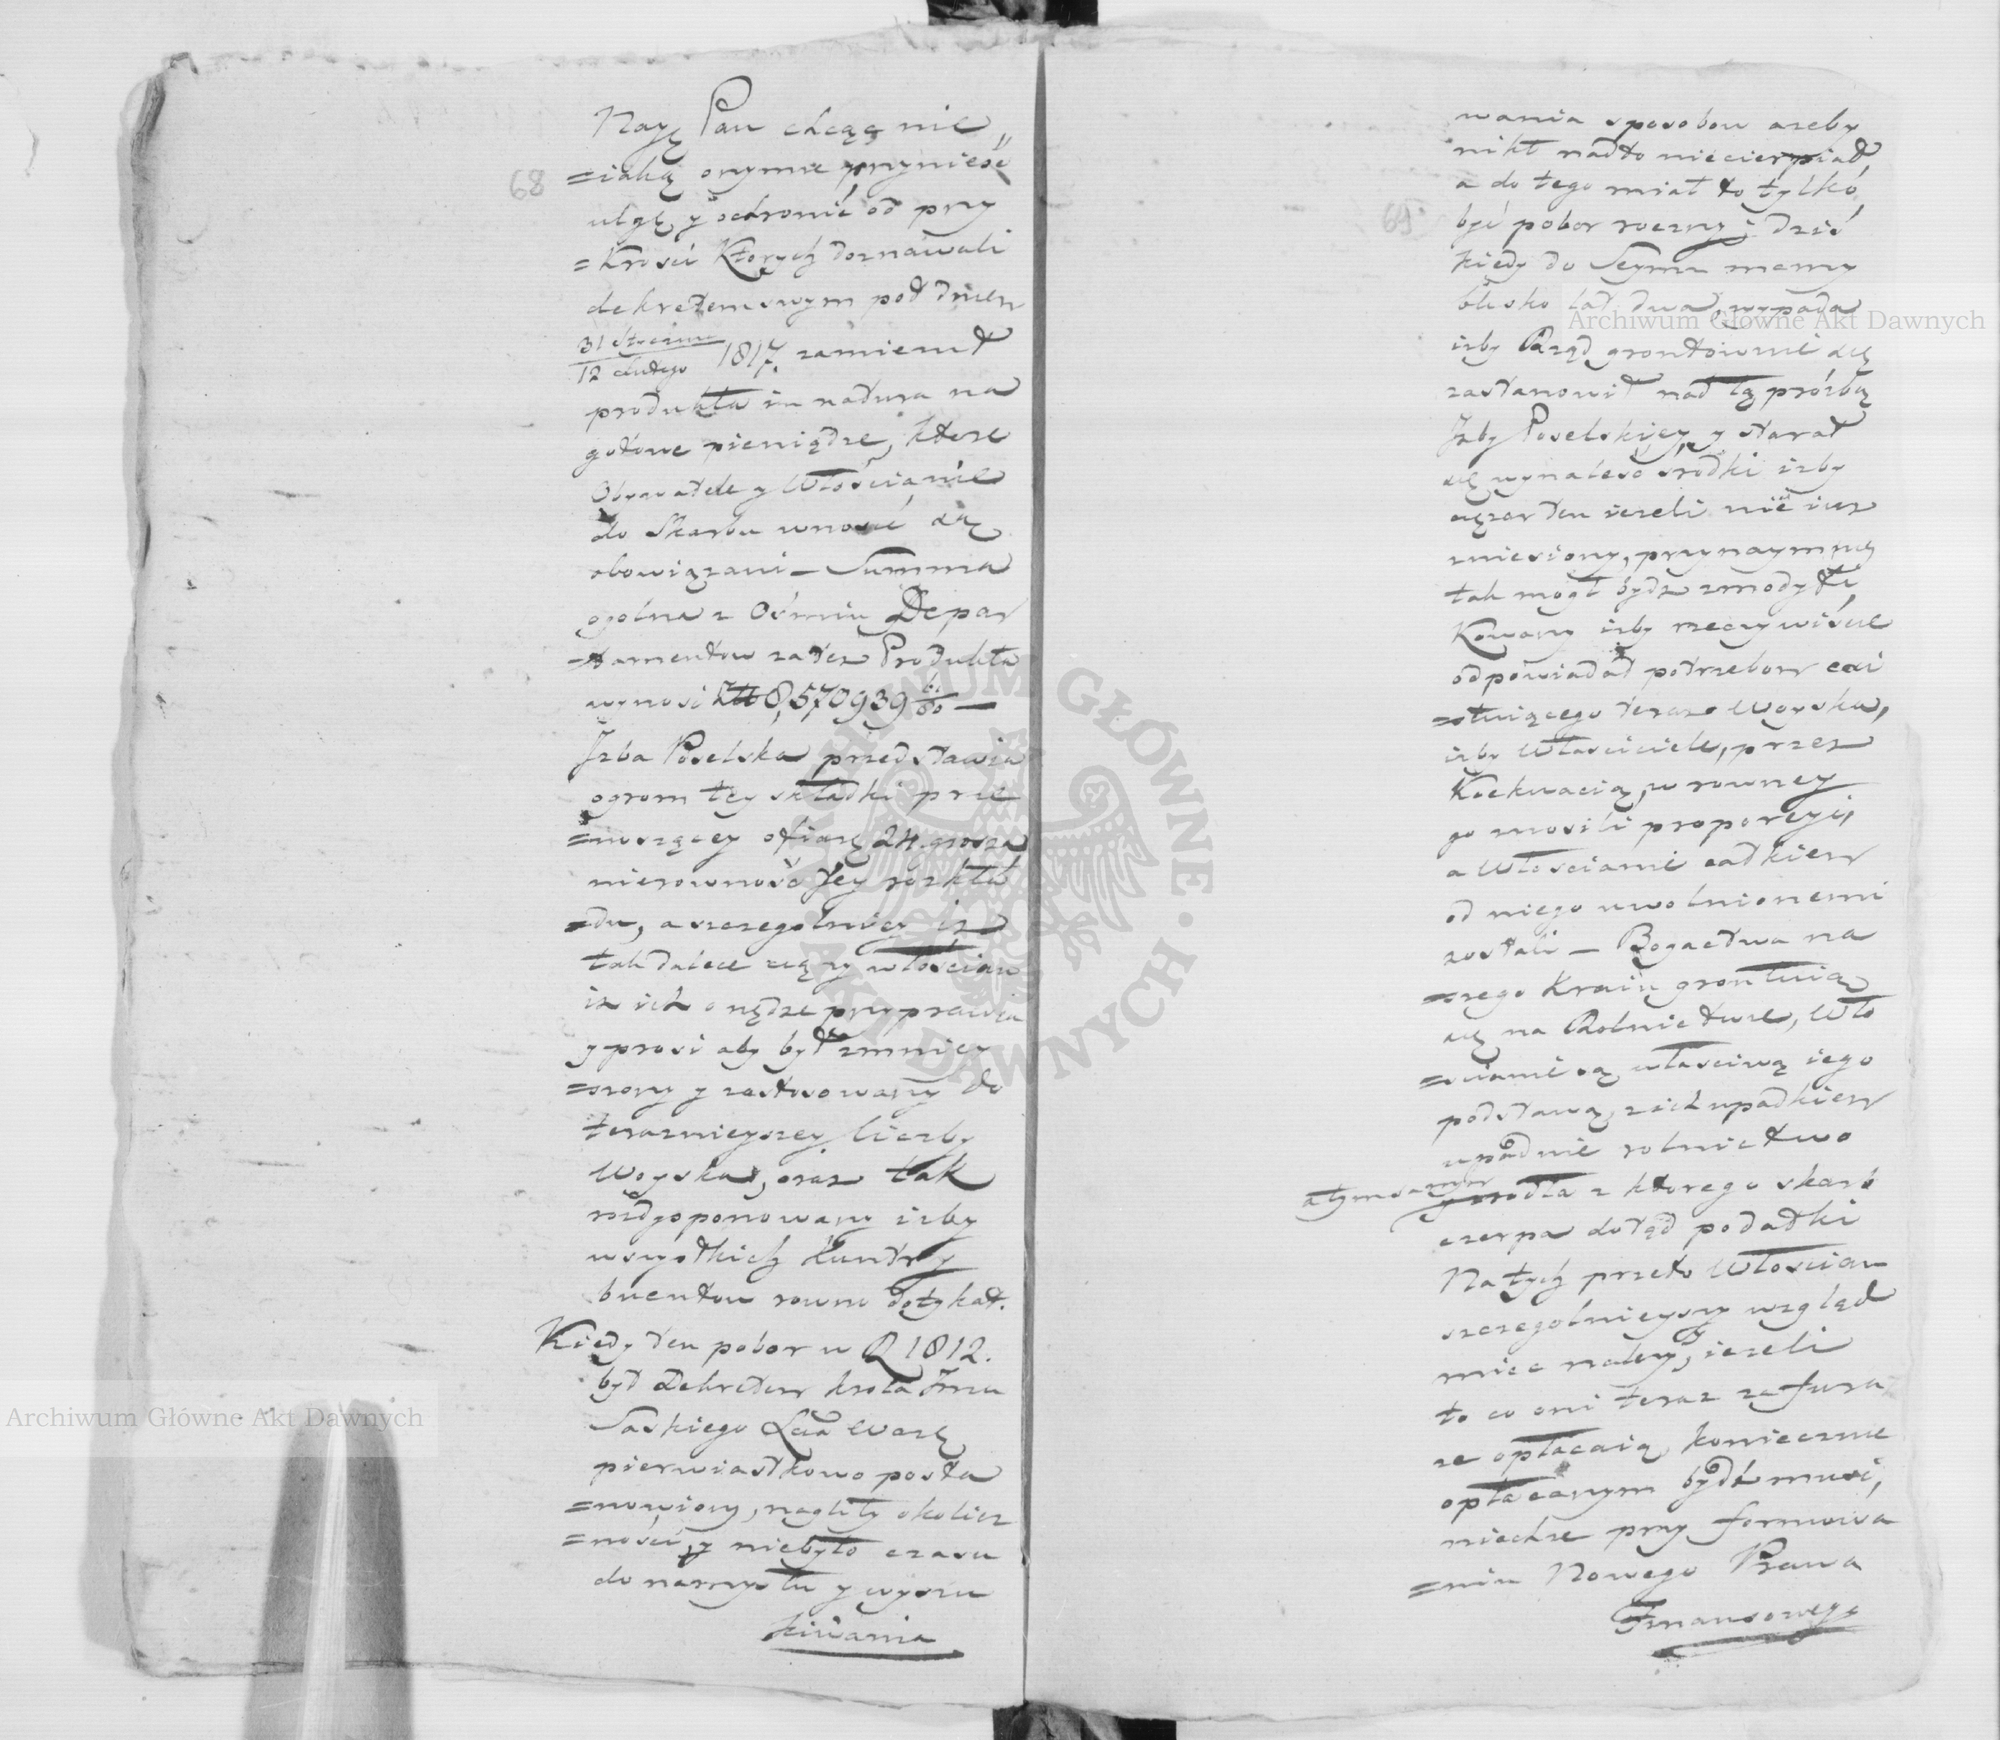 68
Nayę Pan chcąc nie
=iaką onymże przynieść
ulgę, y ochronić od przy
=krości których doznawali
dekretem swym pod dniem
31 Stycznia
12 Lutego 1817. zamienił
produkta in natura na
gotowe pieniądze, które
Obywatele y Włościanie
do Skarbu wnosić są
obowiązani — Summa
ogolna z Ośmiu Depar
=tamentow za też Produkta
wynosi Złł 8,570939
Izba Poselska przedstawia
ogrom tey składki prze
=noszącey ofiarę 24. grosza
nierowność Jey rozkła
=du, a szczegolniey iż
tak dalece ciąży włościan
iż ich o nędze przyprawia
y prosi aby był zmniey
=szony y zastosowany do
teraznieyszey liczby
Woyska, oraz tak
rozdysponowany iżby
wszystkich kontry
buentow rowno dotykał.
Kiedy ten pobor w R 1812.
był Dekretem krola Jmci
Saskiego Xcia Warsz
pierwiastkowo posta
=nowiony, nagliły okolicz
=ności, y niebyło czasu
do namysłu y wyszu
kiwania
69
wania sposobow azeby
nikt nadto niecierpiał,
a do tego miał to tylko
być pobor roczny; dziś
kiedy do Seymu mamy
blisko lat dwa, wypada
iżby Rząd grontownie się
zastanowił nad tą prózbą
Izby Poselskiey, y starał
się wynaleść srodki iżby
ciężar ten ieżeli nie iest
zniesiony, przynaymniey
tak mogł bydź zmodyfi
kowany iżby rzeczywiście
odpowiadał potrzebom exi
=stuiącego teraz Woyska,
iżby Właściciele, przez
Koekwacią, w rowney
go znosili proporcyi,
a Włościanie całkiem
od niego uwolnionemi
zostali — Bogactwa na
=szego Kraiu grontuią
się na Rolnictwie, Wło
=ścianie są właściwą iego
podstawą, z ich upadkiem
upadnie rolnictwo
a tym samym zrodła z ktorego skarb
czerpa dotąd podatki
Na tych przeto Włościan
szczegolnieyszy wzgląd
mieć należy, ieżeli
to co oni teraz za fura
że opłacaią, koniecznie
opłacanym bydź musi,
niechże przy formowa
=niu Nowego Prawa
Finansowego
Archiwum Główne Akt Dawnych
Archiwum Główne Akt Dawnych
ARCHIWUM GŁÓWNE · AKT DAWNYCH ·